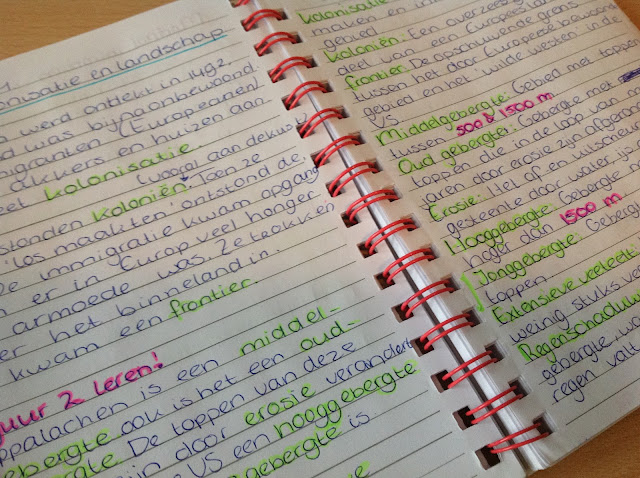 1
onisatie en landschap
werd ontdekt in 1492.
d was bijna onbewoond
migranten (Europeanen)
akkers en huizen aan.
et kolonisatie.
(vooral aan de kust)
stonden koloniën. Toen ze
'los maakten' ontstond de
ze immigratie kwam opgang
n er in Europ veel honger
armoede was. Ze trokken
er het binneland in.
kwam een frontier.
guur 2 leren!
ppalachen is een middel-
gebergte ook is het een oud-
gte. De toppen van deze
ijn door erosie verandert
e VS een hooggebergte
ngebergte is.
kolonisatie
maken en in
gebied
koloniën: Een overzees ge
deel van een Europees land
frontier De opschuivende grens
tussen het door Europeese bewoonde
gebied en het 'wilde westen' in de
VS
Middelgebergte: Gebied met toppen
tussen 500 & 1500 m
Oud gebergte: Gebergte met
toppen die in de loop van
jaren door erosie zijn afgeron
Erosie: Het af en uitschuren
gesteente door water, ijs
Hooggebergte: Gebergte
hoger dan 1500 m
Jonggebergte: Geberg
toppen
Extensieve veeteelt
weinig stuks vee
Regenschaduw
gebergte, wa
regen valt